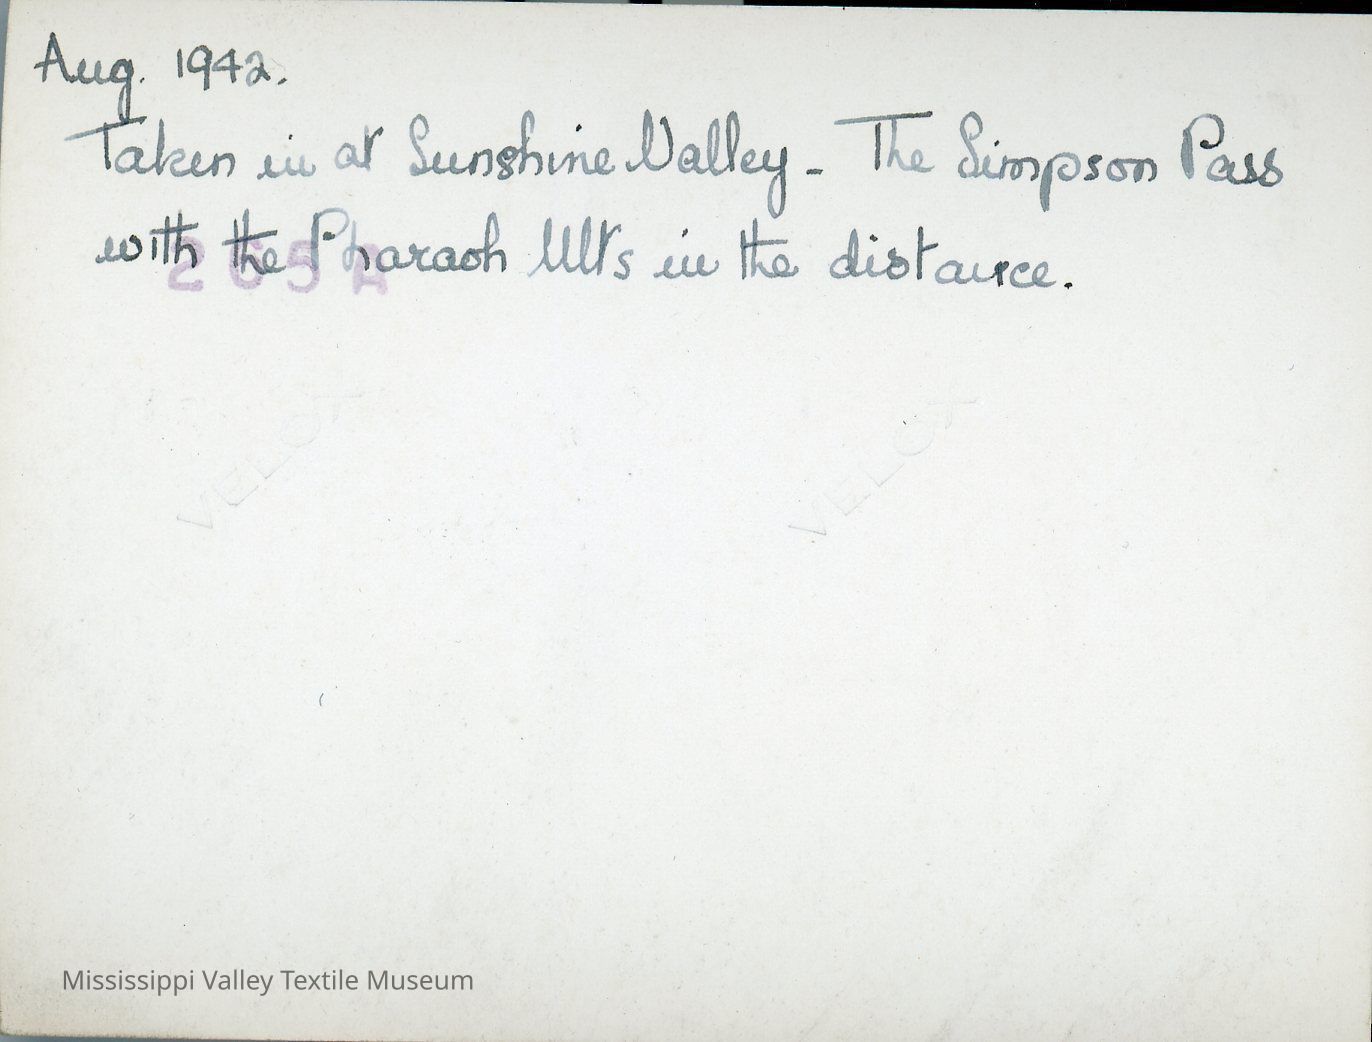 Aug. 1942.
Taken in at Sunshine Valley - The Simpson Pass
with the Pharaoh Mts in the distance.
265A
VELOX VELOX
Mississippi Valley Textile Museum